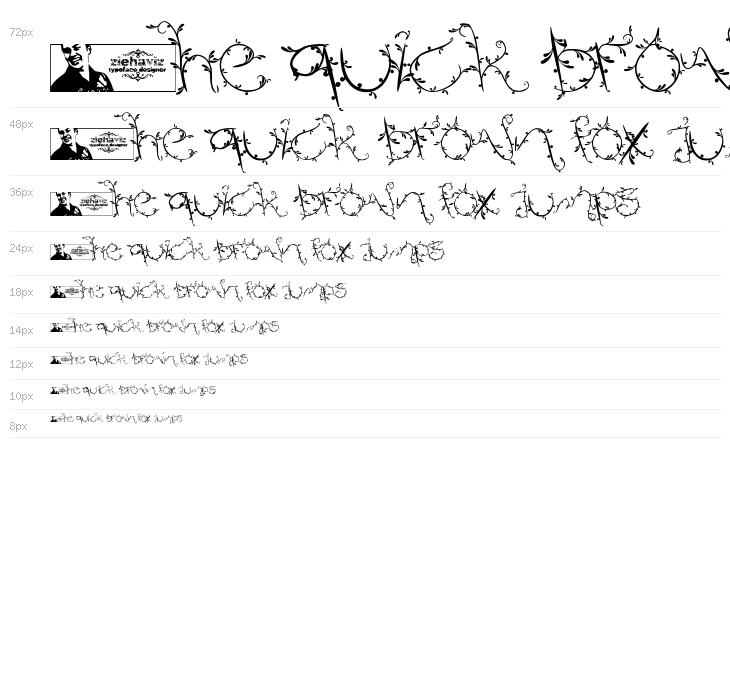 72px ziehaviz typeface designer he quick brow
48px ziehaviz typeface designer he quick brown fox ju
36px ziehaviz he quick brown fox jumps
24px he quick brown fox jumps
18px he quick brown fox jumps
14px he quick brown fox jumps
12px he quick brown fox jumps
10px he quick brown fox jumps
8px he quick brown fox jumps